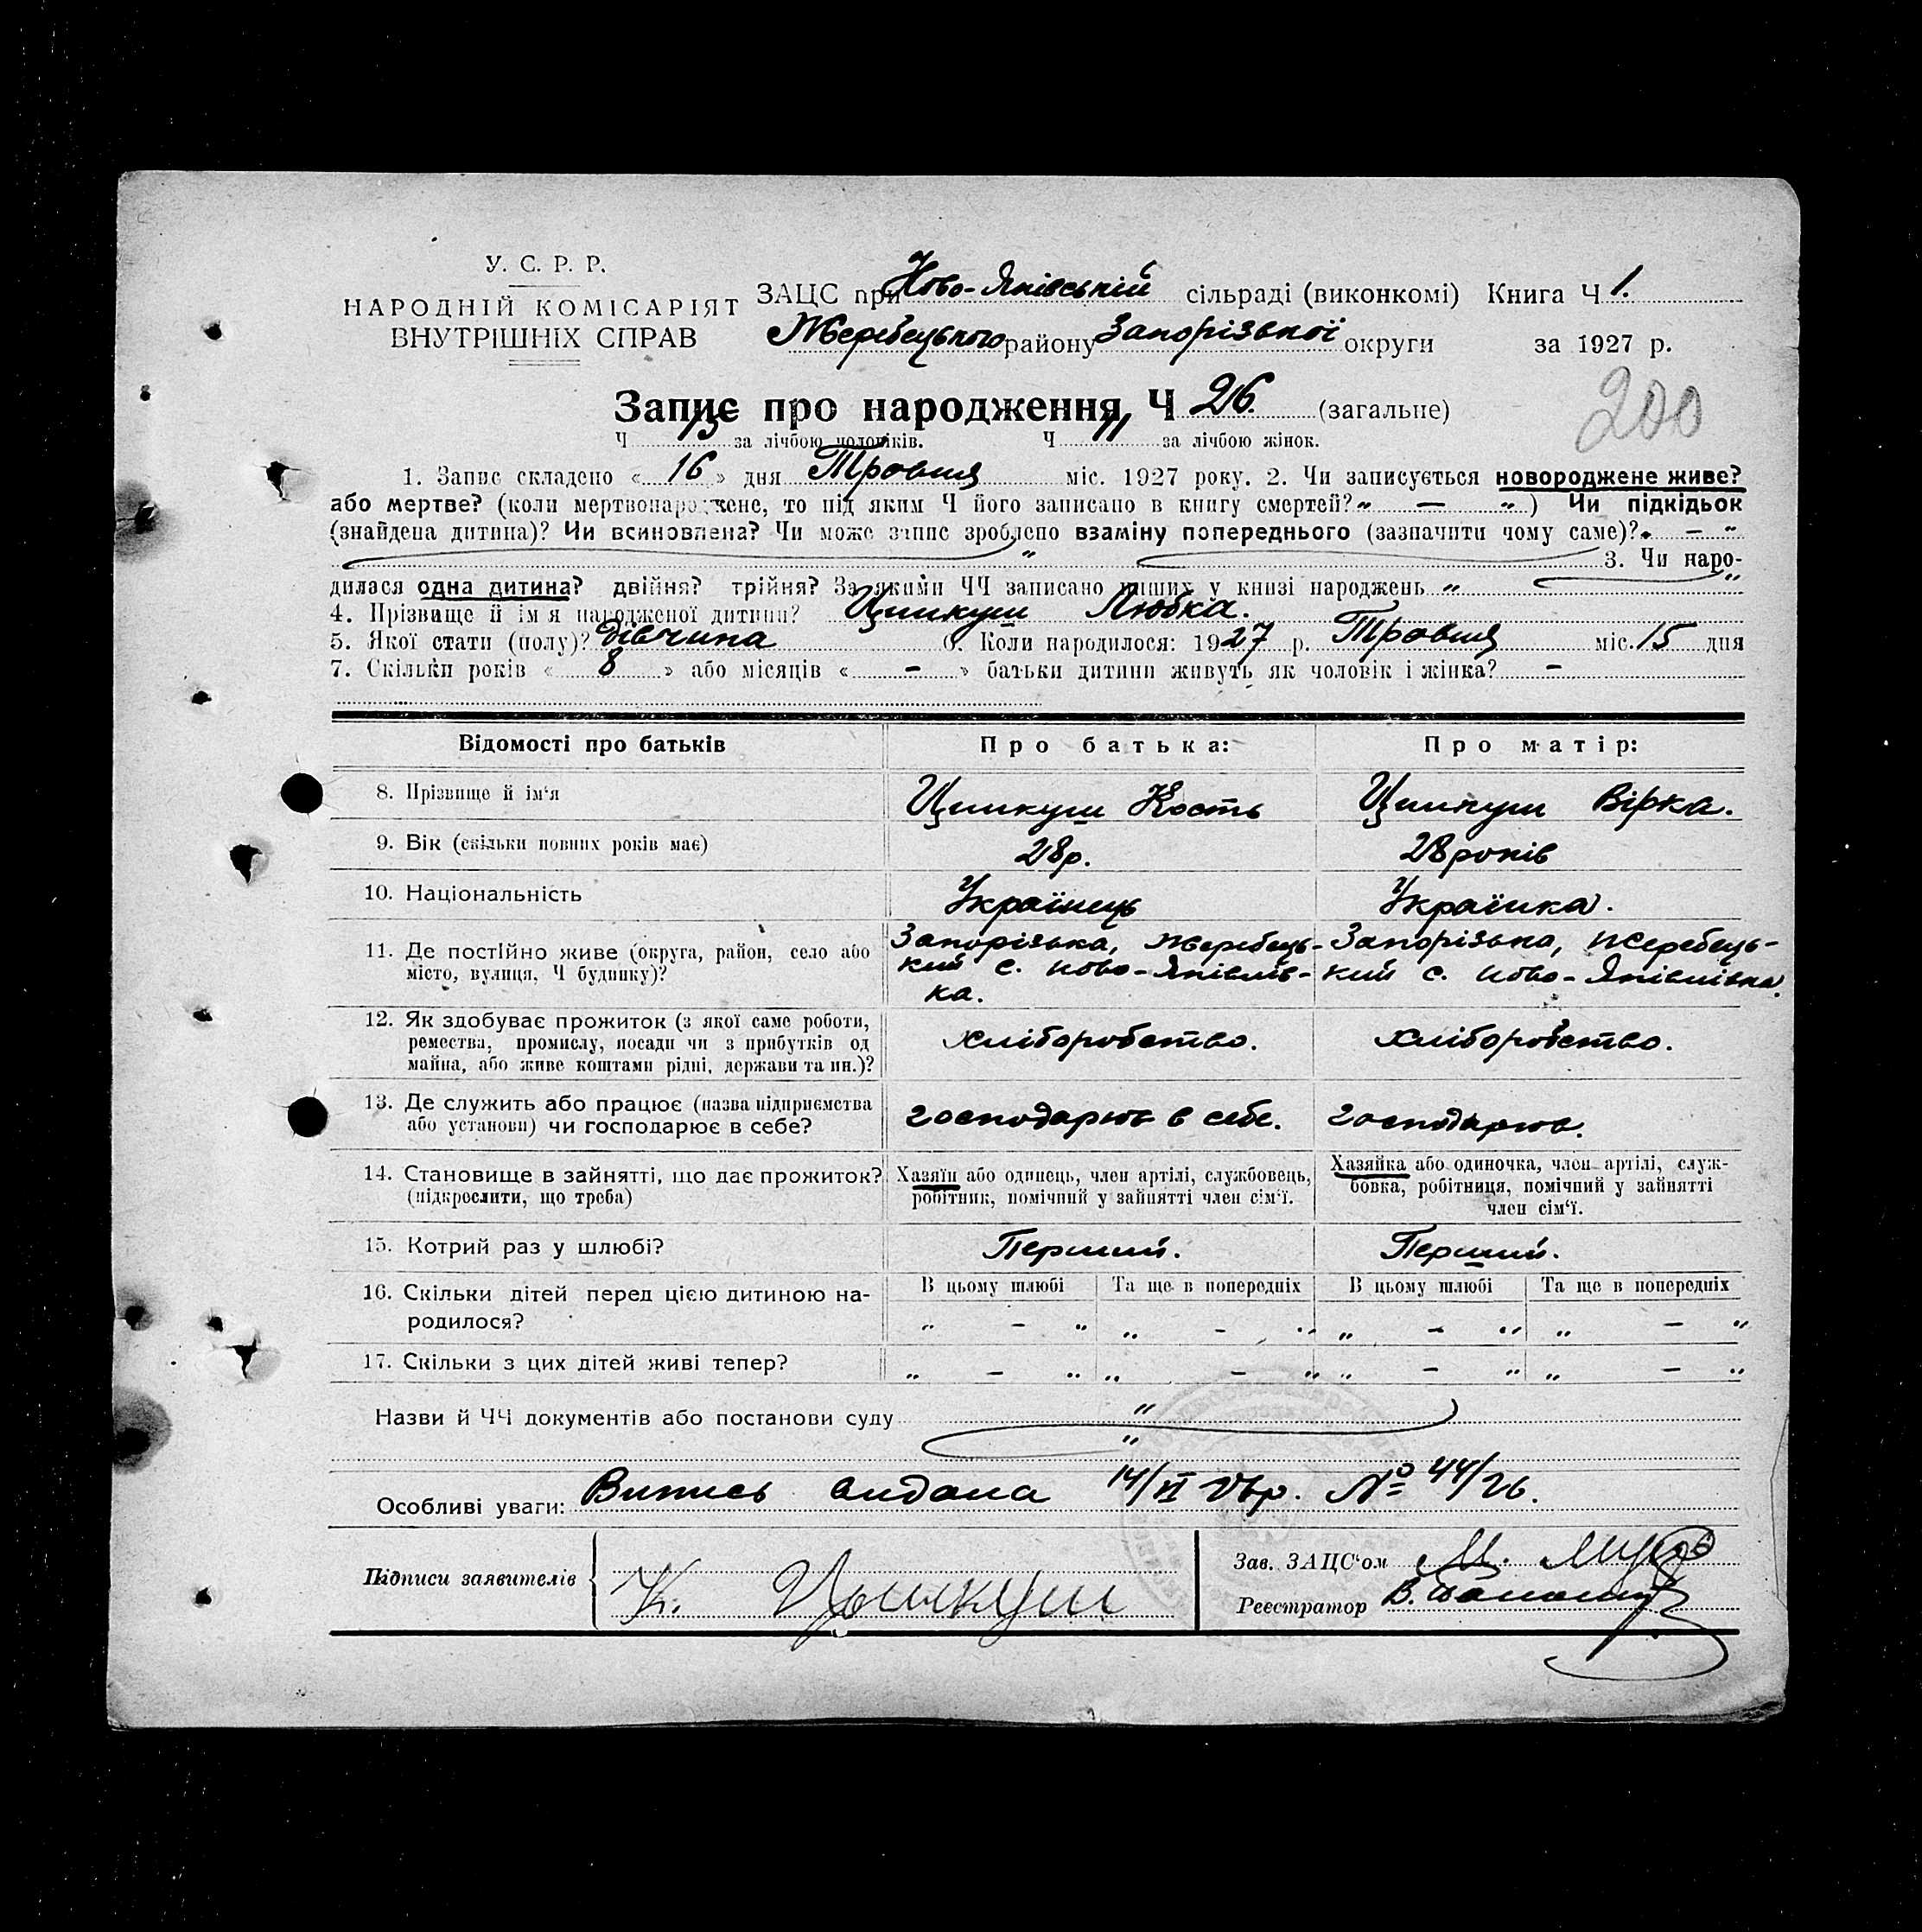 У. С. Р. Р.
НАРОДНІЙ КОМІСАРІЯТ
ВНУТРІШНІХ СПРАВ
ЗАЦС при Ново-Яківській сільраді (виконкомі) Книга Ч 1.
Жеребецького району Запорізької округи за 1927 р.
200
Запис про народження Ч 26. (загальне)
Ч за лічбою чоловіків. Ч 11 за лічбою жінок.
1. Запис складено « 16 » дня Тровня міс. 1927 року. 2. Чи записується новороджене живе?
або мертве? (коли мертвонароджене, то під яким Ч його записано в книгу смертей? „ — „ ) Чи підкідьок
(знайдена дитина)? Чи всиновлена? Чи може запис зроблено взаміну попереднього (зазначити чому саме)? „ — „
„ 3. Чи наро-
дилася одна дитина? двійня? трійня? За якими ЧЧ записано инших у книзі народжень „ „
4. Прізвище й ім'я народженої дитини? Цимкуш Любка.
5. Якої стати (полу)? Дівчина 6. Коли народилося: 1927 р. Тровня міс. 15 дня
7. Скільки років « 8 » або місяців « – » батьки дитини живуть як чоловік і жінка? –
Відомості про батьків Про батька: Про матір:
8. Прізвище й ім'я Цимкуш Кость Цимкуш Вірка.
9. Вік (скільки повних років має) 28р. 28 років
10. Національність Українець Українка.
11. Де постійно живе (округа, район, село або Запорізька, Жеребець- Запорізька, Жеребець-
місто, вулиця, Ч будинку)? кий с. Ново-Яківлів- кий с. Ново-Яківлівка.
ка.
12. Як здобуває прожиток (з якої саме роботи,
ремества, промислу, посади чи з прибутків од хліборобство. хліборобство.
майна, або живе коштами рідні, держави та ин.)?
13. Де служить або працює (назва підприємства господарює в себе. господарює.
або установи) чи господарює в себе?
14. Становище в зайнятті, що дає прожиток? Хазяїн або одинець, член артілі, службовець, Хазяйка або одиночка, член артілі, служ-
(підкреслити, що треба) робітник, помічний у зайнятті член сім'ї. бовка, робітниця, помічний у зайнятті
член сім'ї.
15. Котрий раз у шлюбі? Перший. Перший.
16. Скільки дітей перед цією дитиною на- В цьому шлюбі Та ще в попередніх В цьому шлюбі Та ще в попередніх
родилося? „ – „ „ – „ „ – „ „ – „
17. Скільки з цих дітей живі тепер? „ – „ „ – „ „ – „ „ – „
Назви й ЧЧ документів або постанови суду „
„
Особливі уваги: Випись видана 14/VI № 44/26.
Підписи заявителів К. Цымкуш
Зав. ЗАЦС'ом М.
Реєстратор В.